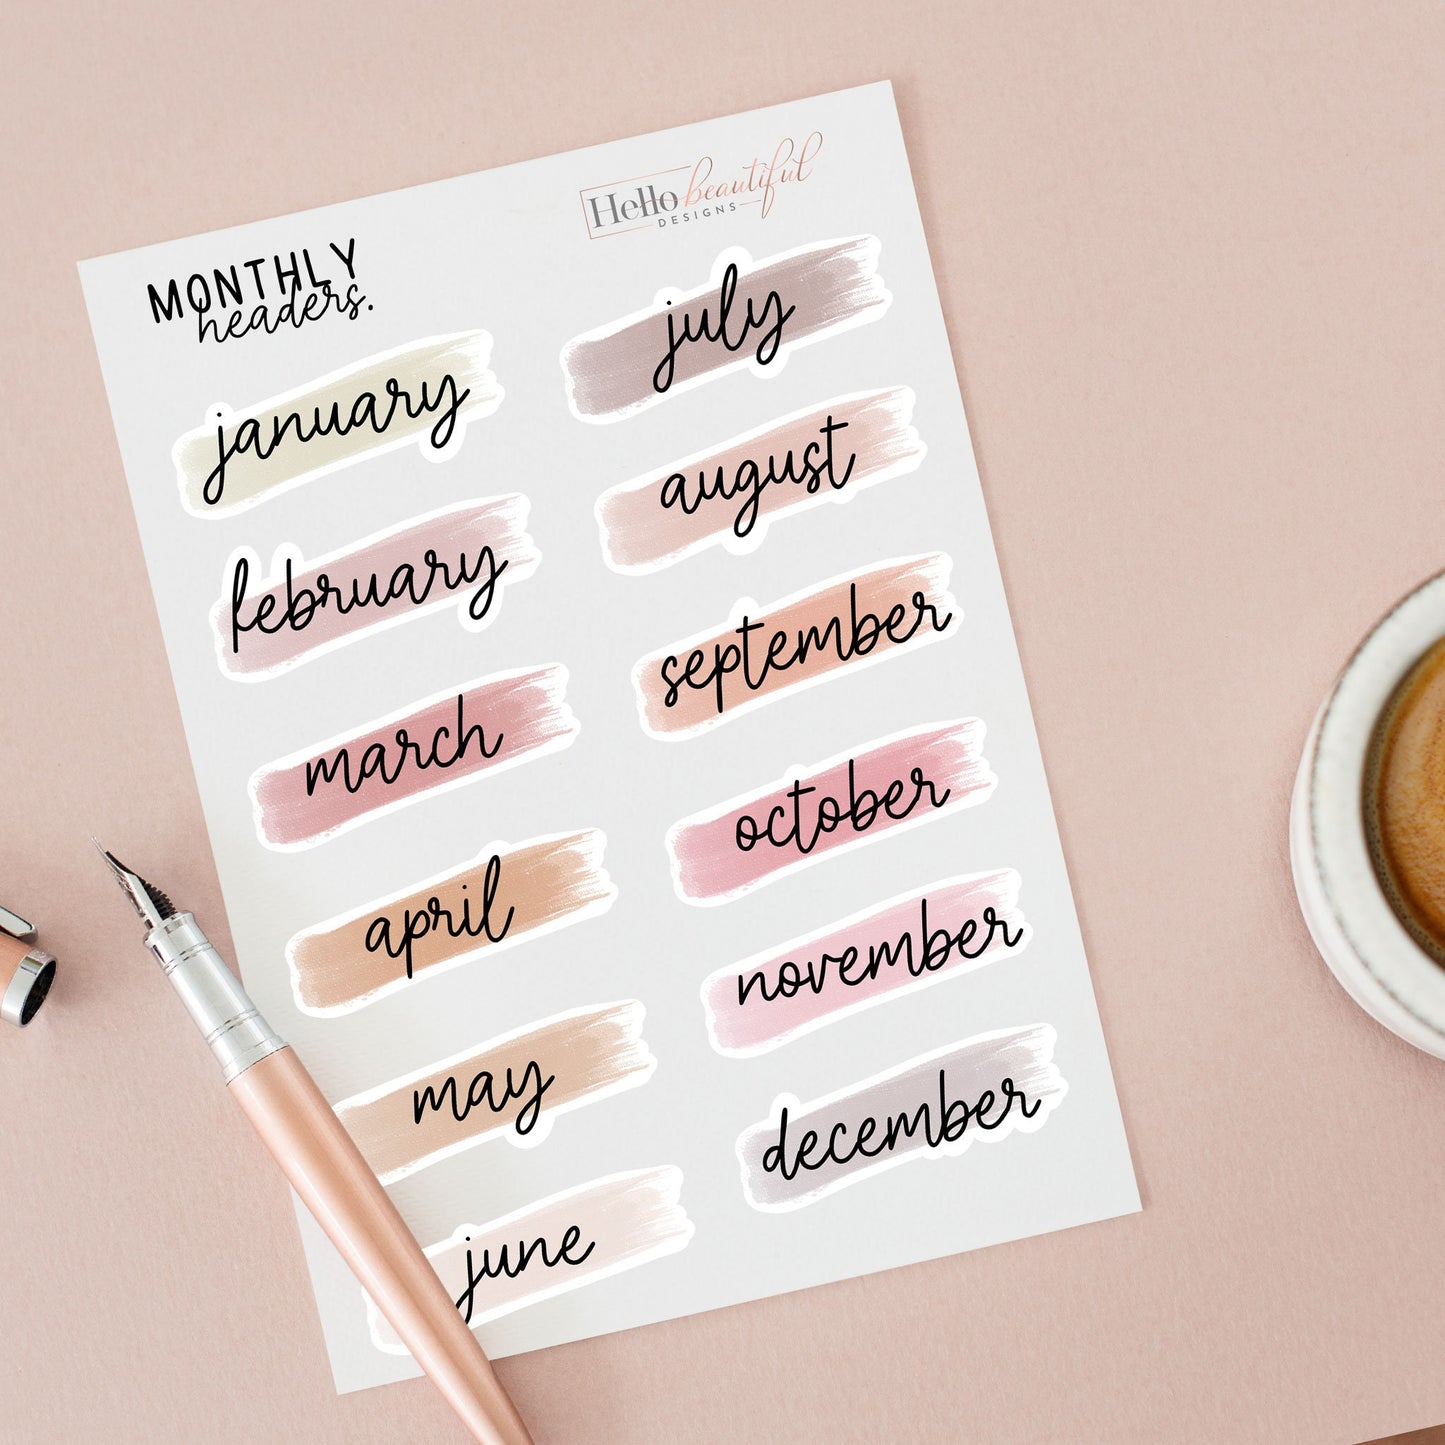 Hello beautiful
DESIGNS
MONTHLY
headers.
january
february
march
april
may
june
july
august
september
october
november
december